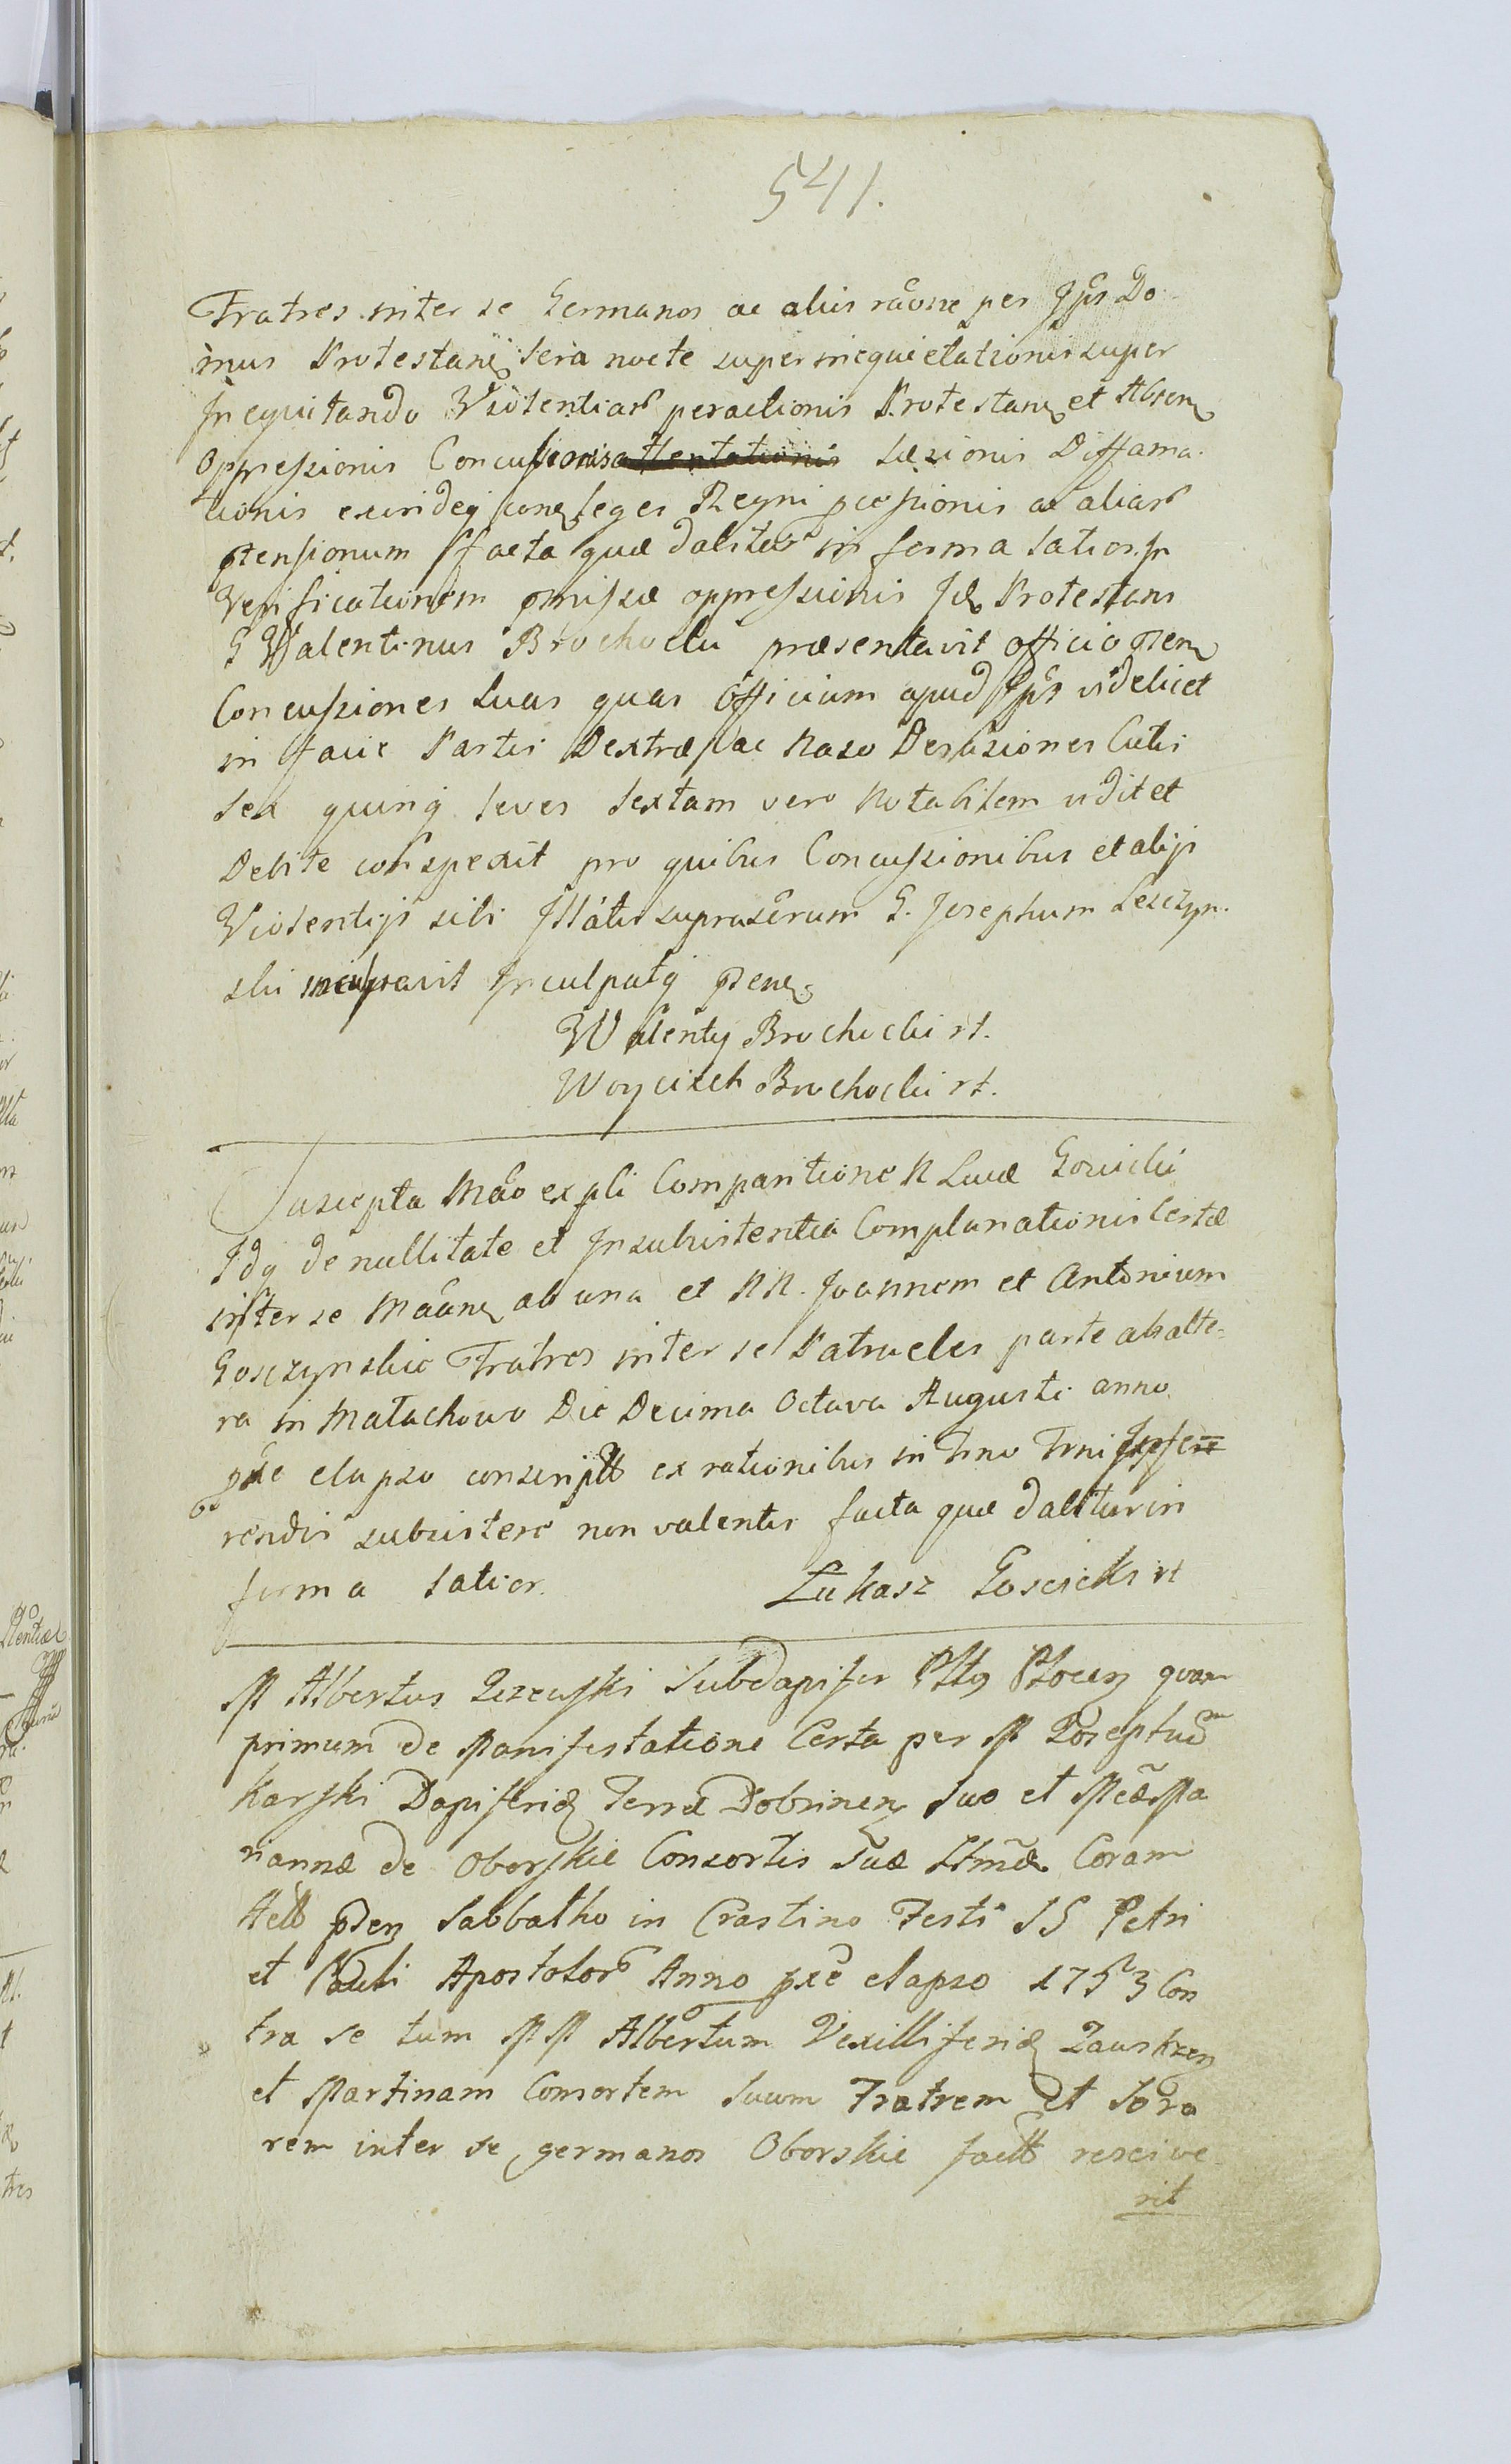 541.
Fratres inter se Germanos ac aliis raone per Ipis Do
mus Protestan sera nocte super inequietationis super
Inequitando Violentiar peractionis Protestan et Absen
Oppressionis Concussionis attentationis Læsionis Diffama
tionis exindeq con Leges Regni pcessionis ac aliar
ptensionum facta quæ dabitur in forma latior. In
Verificationem pmissæ oppressionis Id Protestans
G Walentinus Brochocki præsentavit officio psen
Concussiones suas quas Officium apud Ipm videlicet
in facie Partis Dextræ ac Naso Desisiones Cutis
sex quinq leves sextam vero notabilem vidit et
Debite conspexit pro quibus Concussionibus et alijs
Violentijs sibi Illatis suprascrum G. Josephum Leszczyn
ski inculpavit Inculpatq psens
Walenty Brochocki rt.
Woyciech Brochocki rt.
Suscepta Mao expli Comparitione N Lucæ Goscicki
Idq de nullitate et Insubsistentia Complanationis Certæ
inter se Maan ab una et NN. Joannem et Antonium
Gosczynskie Fratres inter se Patrueles parte ab alte
ra in Małachowo Die Decima Octava Augusti anno
pxe elapso conscript ex rationibus in Tno Trni Infe
rendis subsistere non valentis facta quæ dabitur in
forma latior. Łukasz Goscicki rt
M Albertus Jezewski Subdapifer Pltg Plocen quam
primum de Manifestatione Certa per M Josephum
Karski Dapiferid Terræ Dobrinen suo et Mcæ Ma
riannæ de Oborskie Consortis suæ Ttmæ Coram
Actis psen Sabbatho in Crastino Festi SS Petri
et Pauli Apostolor Anno pxe elapso 1753 Con
tra se tum MM Albertum Vexilliferid Zauskrzen
et Martinam Consortem suum Fratrem et Soro
rem inter se germanos Oborskie factt rescive
rit